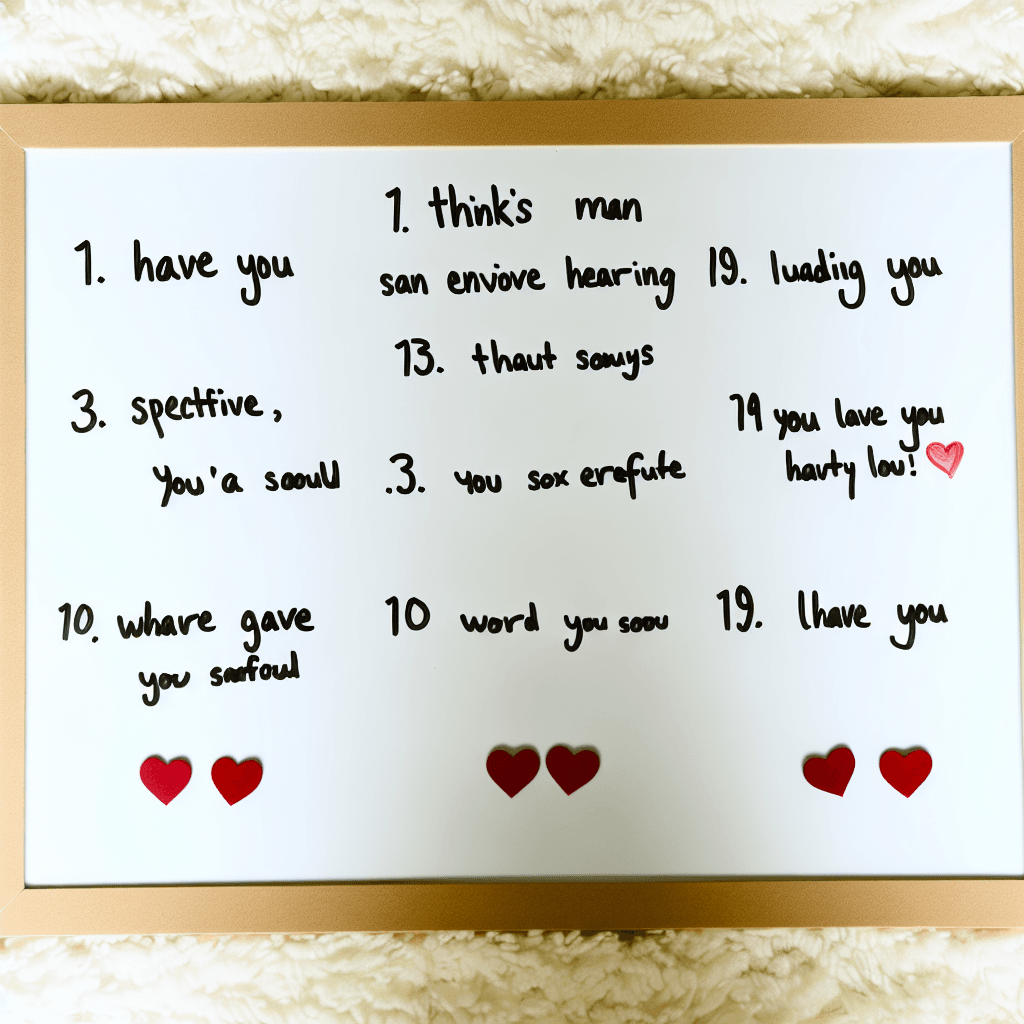 1. have you
3. spectfive,
you'a soould
10. whare gave
you snafoul
1. think's man
san envove hearing
13. thaut somys
.3. you sox erefute
10 word you soou
19. luadiig you
19 you lave you
havty lou!
19. lhave you